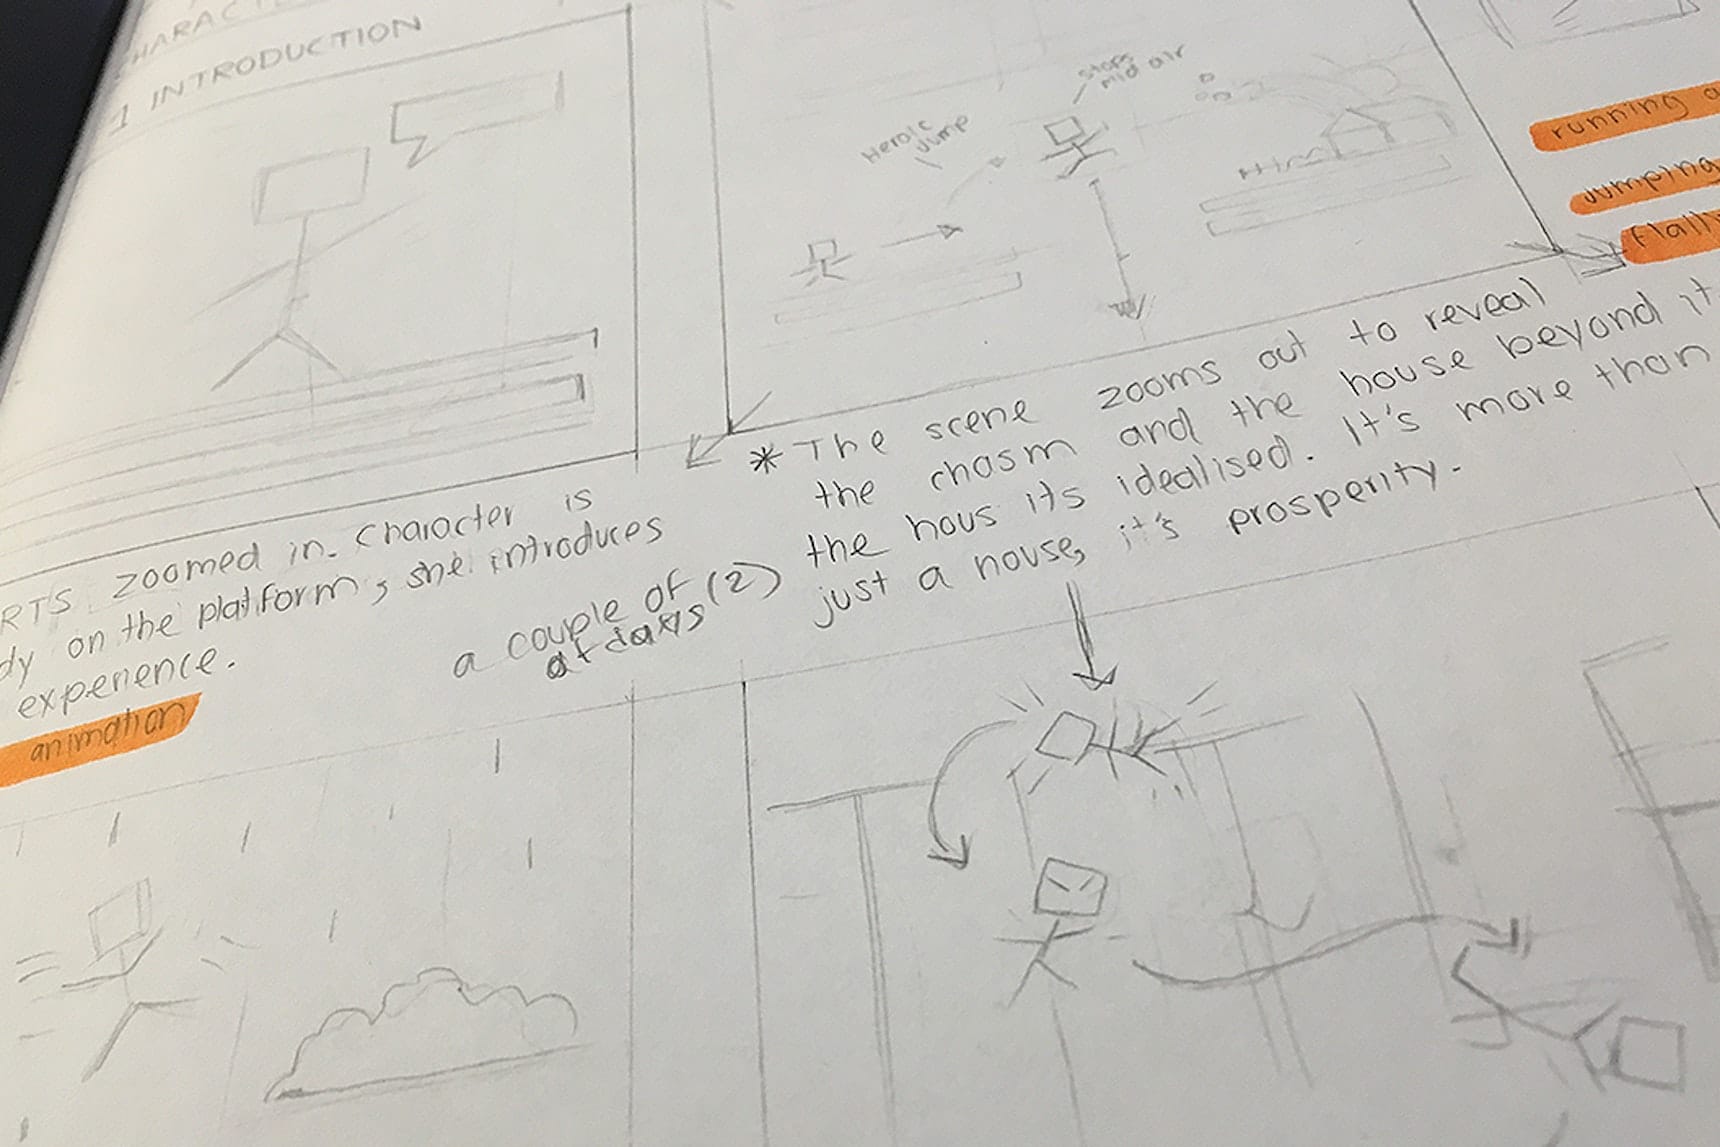 1 INTRODUCTION
Heroic
Jump
stops
mid air
running
Jumping
* The scene zooms out to reveal
the chasm and the house beyond it
the hous its idealised. It's more than
just a house, it's prosperity.
RTS zoomed in. Character is
dy on the platform, she introduces
experience.
a couple of (2)
animation